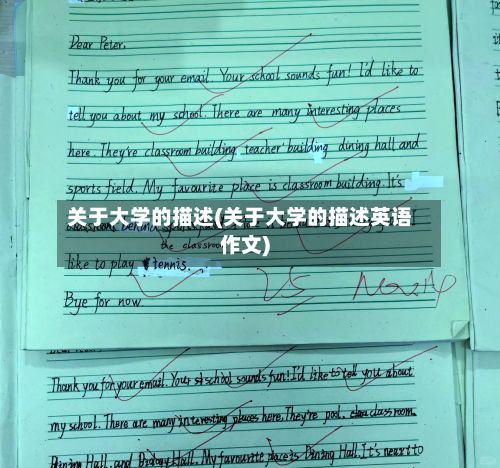 Dear Peter,
Thank you for your email. Your school sounds fun! I'd like to
tell you about my school. There are many interesting places
here. They're classroom building, teacher building dining hall and
sports field. My favourite place is classroom building. It's
关于大学的描述(关于大学的描述英语
作文)
behind
the classroom
like to play tennis.
Bye for now.
Thank you for your email. Your school sounds fun! I'd like to tell you about
my school. There are many interesting places here. They're pool, classroom,
Dining Hall, and Hall. My favourite place is Dining Hall. It's next to